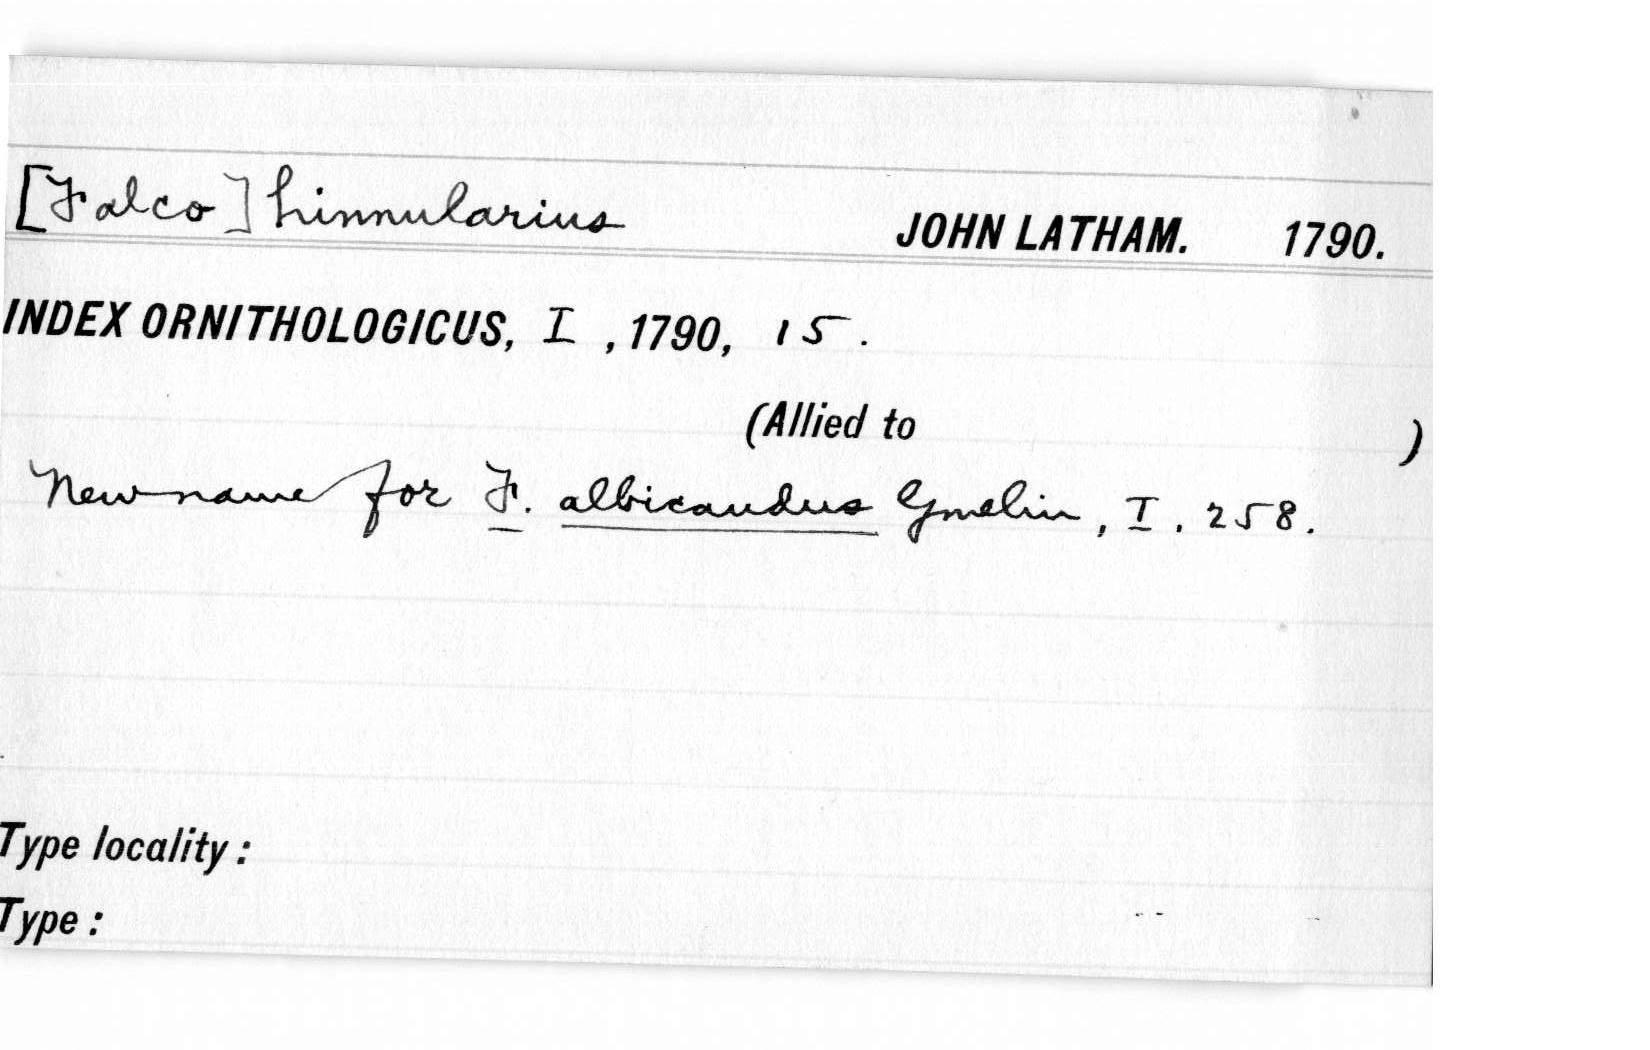 [Falco] hinnularius JOHN LATHAM. 1790.
INDEX ORNITHOLOGICUS, I, 1790, 15.
(Allied to )
New name for F. albicaudus Gmelin, I, 258.
Type locality:
Type: